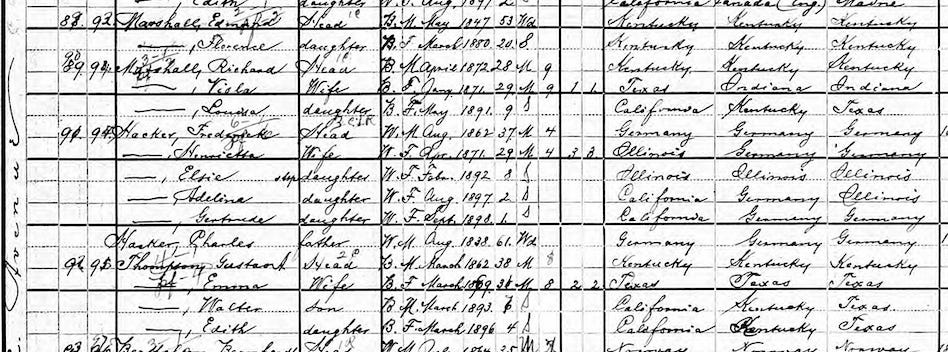 Edith daughter W. F. Aug. 1897 2 California Canada (Eng) Maine
88 92 Marshall, Head B. M. May 1847 53 Wd Kentucky Kentucky Kentucky
—, Florence daughter B. F. March 1880 20 S Kentucky Kentucky Kentucky
89 93 Marshall, Richard Head B. M. April 1872 28 M 9 Kentucky Kentucky Kentucky
—, Viola Wife B. F. Jany. 1871 29 M 9 1 1 Texas Indiana Indiana
—, Louisa daughter B. F. May 1891 9 S California Kentucky Texas
90 94 Hacker, Frederick Head W. M. Aug. 1862 37 M 4 Germany Germany Germany
—, Henrietta Wife W. F. Apr. 1871 29 M 4 3 3 Illinois Germany Germany
—, Elsie step daughter W. F. Febr. 1892 8 S Illinois Illinois Illinois
—, Adelina daughter W. F. Aug. 1897 2 S California Germany Illinois
—, Gertrude daughter W. F. Sept. 1898 1 S California Germany Germany
Hacker, Charles father W. M. Aug. 1838 61 Wd Germany Germany Germany
91 95 Thompson, Gustav A Head B. M. March 1862 38 M 8 Kentucky Kentucky Kentucky
—, Emma Wife B. F. March 1869 31 M 8 2 2 Texas Texas Texas
—, Walter son B. M. March 1893 6 S California Kentucky Texas
—, Edith daughter B. F. March 1896 4 S California Kentucky Texas
Head W. M. M Norway Norway Norway
Avenue